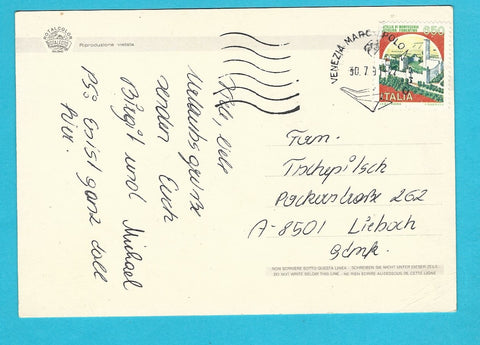 ROTALCOLOR
Riproduzione vietata
Viele liebe
Urlaubsgrüße
senden Euch
Birgit und Michael
PS: Es ist ganz toll
hier.
VENEZIA MARCO POLO
30.7.9
650
CASTELLO DI MONTECCHIO
ITALIA
Fam.
Packerstraße 262
A-8501 Lieboch
NON SCRIVERE SOTTO QUESTA LINEA - SCHREIBEN SIE NICHT UNTER DIESER ZEILE
DO NOT WRITE BELOW THIS LINE - NE RIEN ECRIRE AU-DESSOUS DE CETTE LIGNE